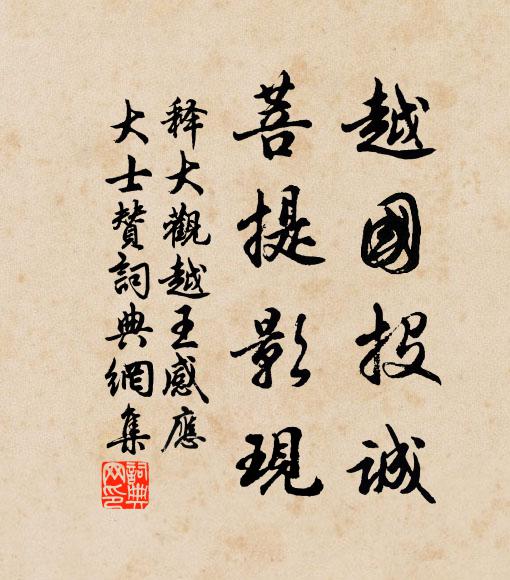 越國投誠
菩提影現
释大觀越王感應
大士贊詞典網集
詞典
网印